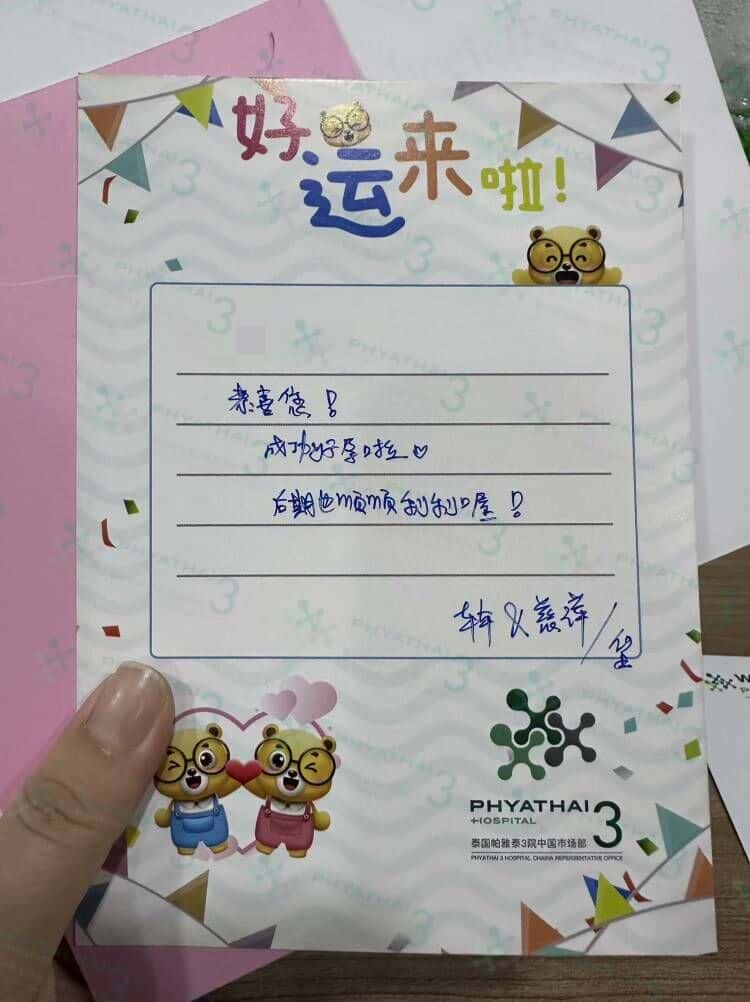 好运来啦!
恭喜您!
成功好孕啦♡
后期也顺顺利利喔!
&慧萍/
PHYATHAI 3
HOSPITAL
泰国帕雅泰3院中国市场部
PHYATHAI 3 HOSPITAL CHAINA REPERSENTATIVE OFFICE
W
PHYATHAI 3